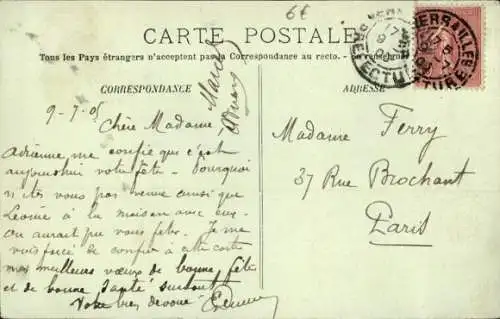 6€
CARTE POSTALE
Tous les Pays étrangers n'acceptent pas la Correspondance au recto.
CORRESPONDANCE
ADRESSE
VERSAILLES
PREFECTURE
9-7-05
Chère Madame,
Adrienne me confie que c'est
aujourdhui votre fête - Pourquoi
n'êtes vous pas venue ainsi que
Léonie à la maison avec eux.
On aurait pu vous fêter. Je me
vois forcé de confier à cette carte
mes meilleurs vœux de bonne fête
et de bonne santé surtout
Votre bien dévoué
Madame Ferry
37 Rue Brochant
Paris